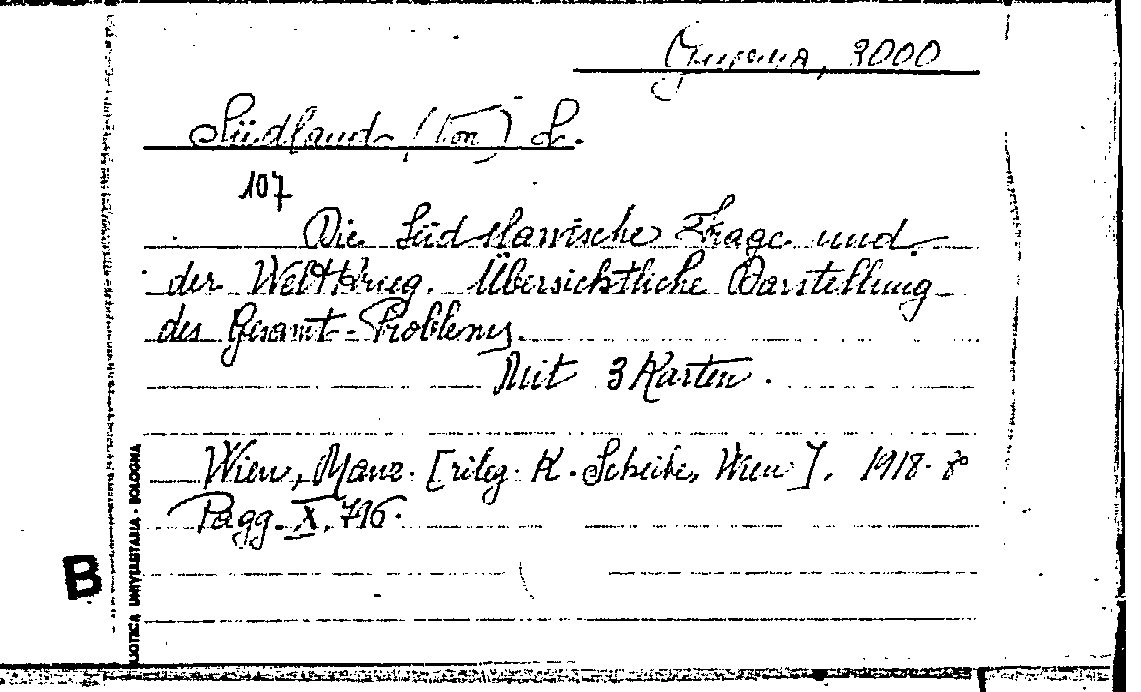 Guerra, 2000
Südland (von) L.
107
Die Südslawische Frage und
der Weltkrieg. Übersichtliche Darstellung
des Gesamt-Problems.
Mit 3 Karten.
Wien, Manz. [rileg. K. Scheibe, Wien]. 1918. 8º
Pagg. X, 796.
B
LIOTECA UNIVERSITARIA - BOLOGNA